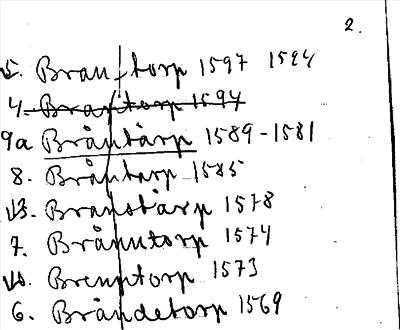 2.
5. Brantorp 1597 1594
4. Brantorp 1594
9a Bråntårp 1589-1581
8. Bråntarp 1585
13. Branstarp 1578
7. Brånntorp 1574
10. Brenntorp 1573
6. Brändetorp 1569